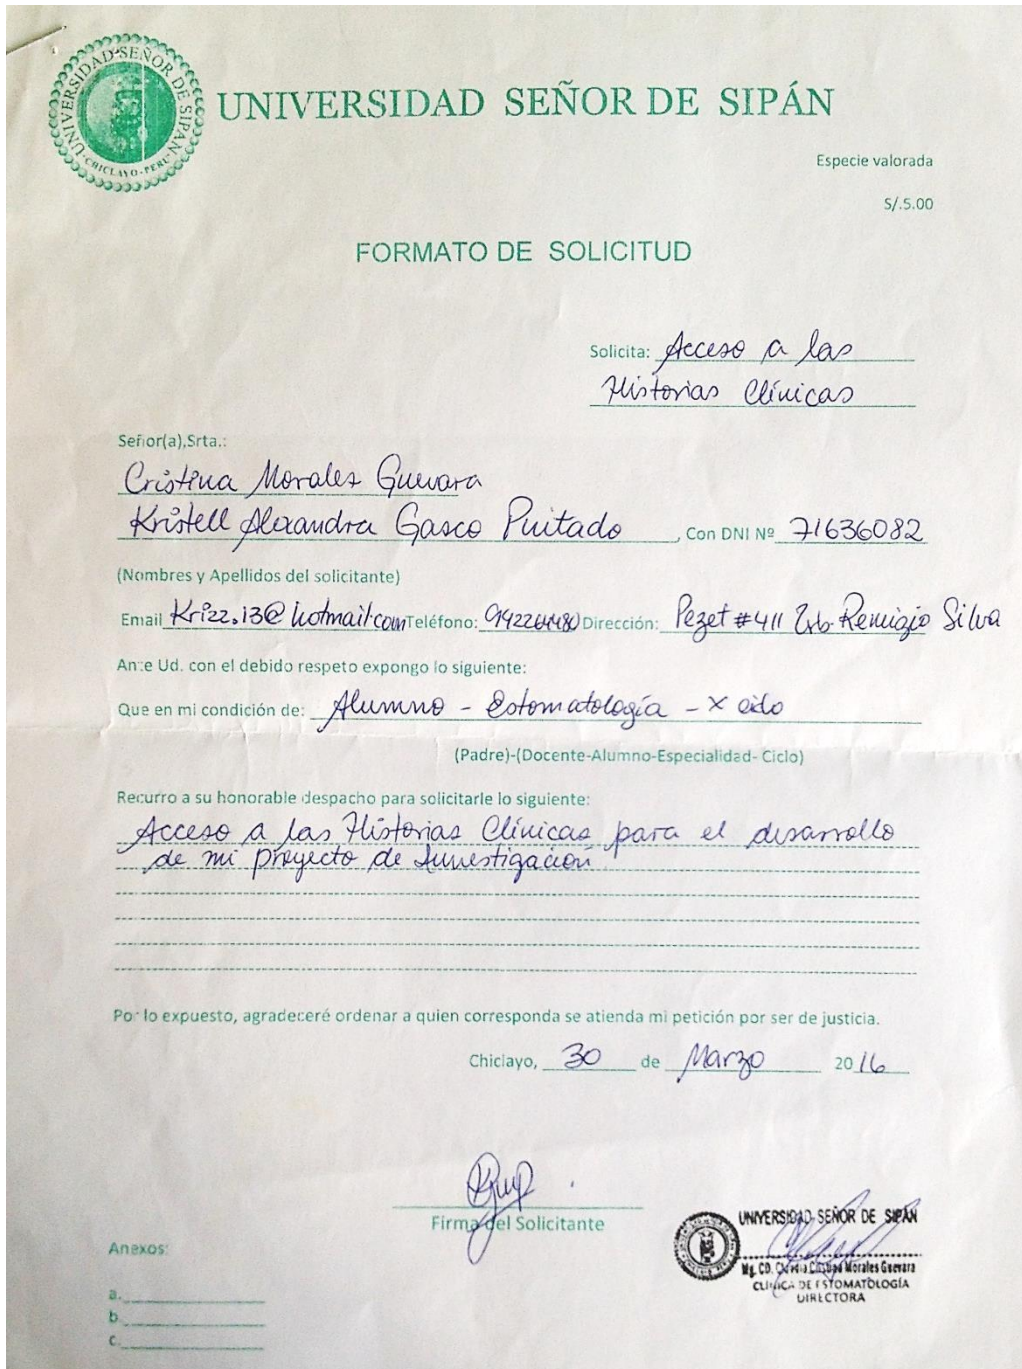 UNIVERSIDAD SEÑOR DE SIPÁN
CHICLAYO - PERU
UNIVERSIDAD SEÑOR DE SIPÁN
Especie valorada
S/.5.00
FORMATO DE SOLICITUD
Solicita: Acceso a las
Historias Clínicas
Señor(a),Srta.:
Cristina Morales Guevara
Kristell Alexandra Gasco Puitado, Con DNI Nº 71636082
(Nombres y Apellidos del solicitante)
Email Krizz.13@hotmail.com Teléfono: Dirección: Pezet #411 Urb. Remigio Silva
Ante Ud. con el debido respeto expongo lo siguiente:
Que en mi condición de: Alumno - Estomatología - X ciclo
(Padre)-(Docente-Alumno-Especialidad- Ciclo)
Recurro a su honorable despacho para solicitarle lo siguiente:
Acceso a las Historias Clínicas para el desarrollo
de mi proyecto de Investigación
Por lo expuesto, agradeceré ordenar a quien corresponda se atienda mi petición por ser de justicia.
Chiclayo, 30 de Marzo 2016
Firma del Solicitante
UNIVERSIDAD SEÑOR DE SIPÁN
Mg. CD. Cristina Morales Guevara
CLINICA DE ESTOMATOLOGÍA
DIRECTORA
Anexos:
a.
b.
c.